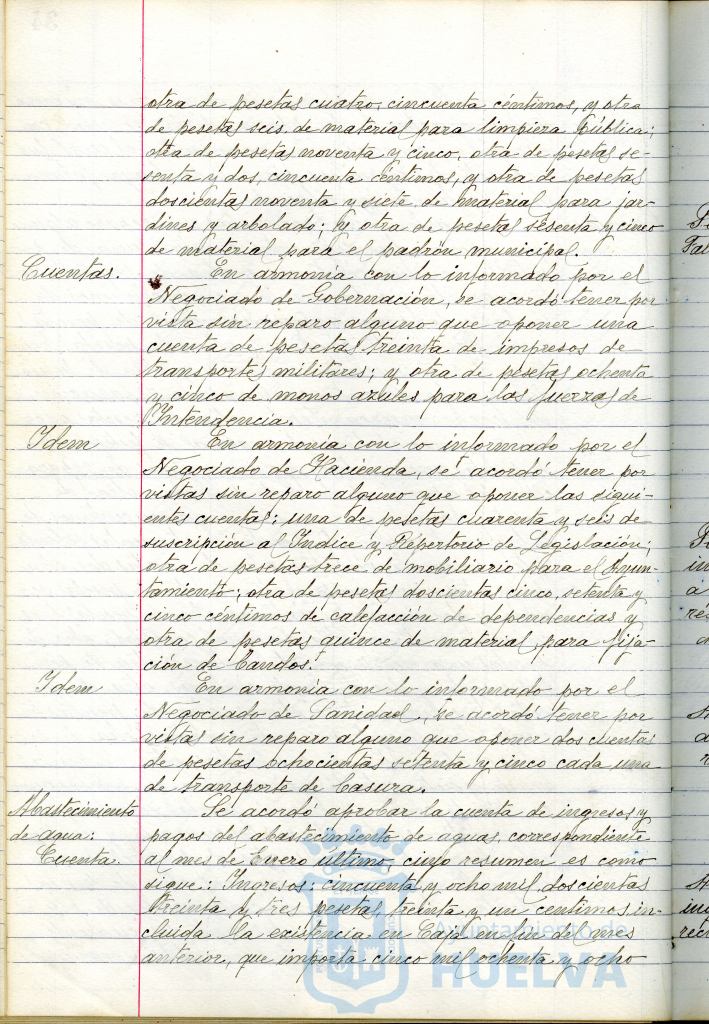 otra de pesetas cuatro, cincuenta céntimos, y otra
de pesetas seis, de material para limpieza pública;
otra de pesetas noventa y cinco, otra de pesetas se-
senta y dos, cincuenta céntimos, y otra de pesetas
doscientas noventa y siete de material para jar-
dines y arbolado; y otra de pesetas sesenta y cinco
de material para el padrón municipal.
Cuentas. En armonía con lo informado por el
Negociado de Gobernación, se acordó tener por
vista sin reparo alguno que oponer una
cuenta de pesetas treinta de impresos de
transportes militares; y otra de pesetas ochenta
y cinco de monos azules para las fuerzas de
Intendencia.
Idem En armonía con lo informado por el
Negociado de Hacienda, se acordó tener por
vistas sin reparo alguno que oponer las sigui-
entes cuentas: una de pesetas cuarenta y seis de
suscripción al Indice y Repertorio de Legislación;
otra de pesetas trece de mobiliario para el Ayun-
tamiento; otra de pesetas doscientas cinco, setenta y
cinco céntimos de calefacción de dependencias y
otra de pesetas quince de material para fija-
ción de bandos.
Idem En armonía con lo informado por el
Negociado de Sanidad, se acordó tener por
vistas sin reparo alguno que oponer dos cuentas
de pesetas ochocientas setenta y cinco cada una
de transporte de basura.
Abastecimiento Se acordó aprobar la cuenta de ingresos y
de agua. pagos del abastecimiento de aguas, correspondiente
Cuenta. al mes de Enero último, cuyo resumen es como
sigue: Ingresos: cincuenta y ocho mil doscientas
treinta y tres pesetas, treinta y un centimos, in-
cluida la existencia en Caja en fin del mes
anterior, que importa cinco mil ochenta y ocho
Ayuntamiento de
HUELVA